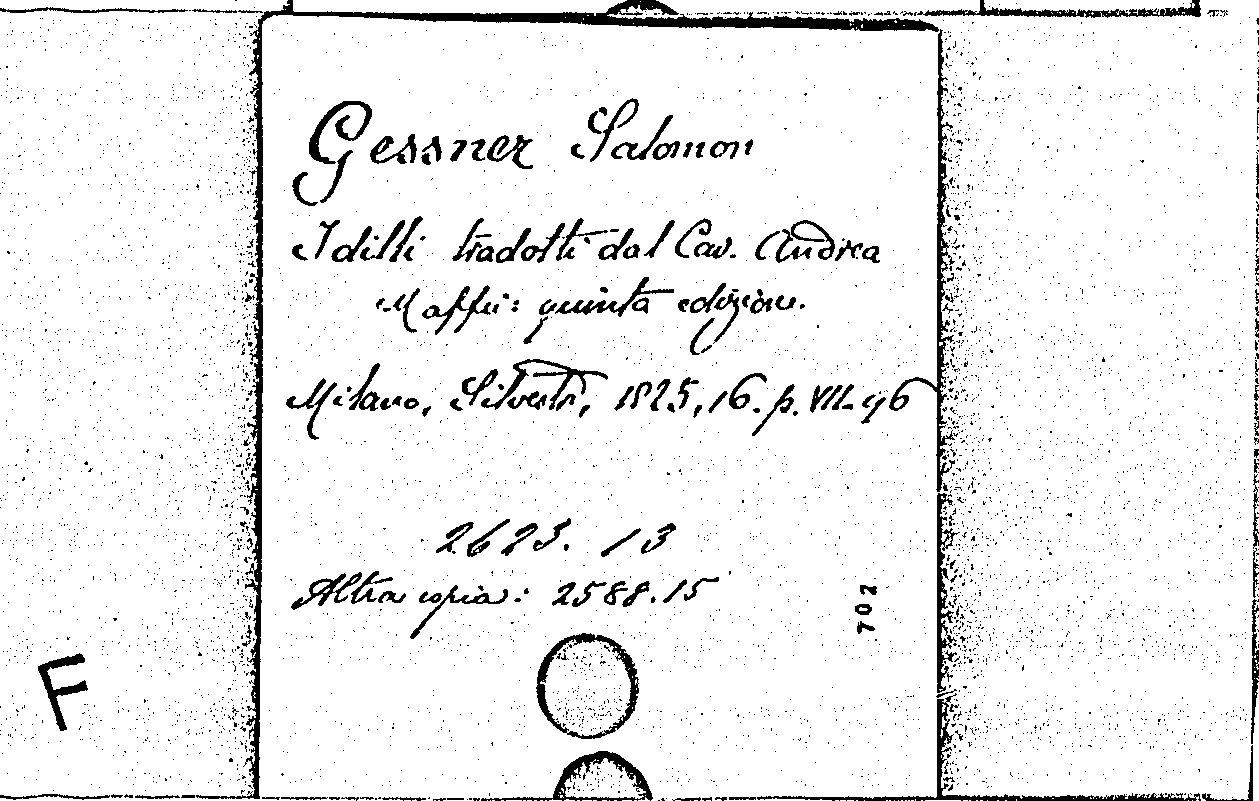 Gessner Salomon
Idilli tradotti dal Cav. Andrea
Maffei: quinta edizione.
Milano, Silvestri, 1825, 16. p. VII-96
2623. 13
Altra copia: 2588.15
702
F